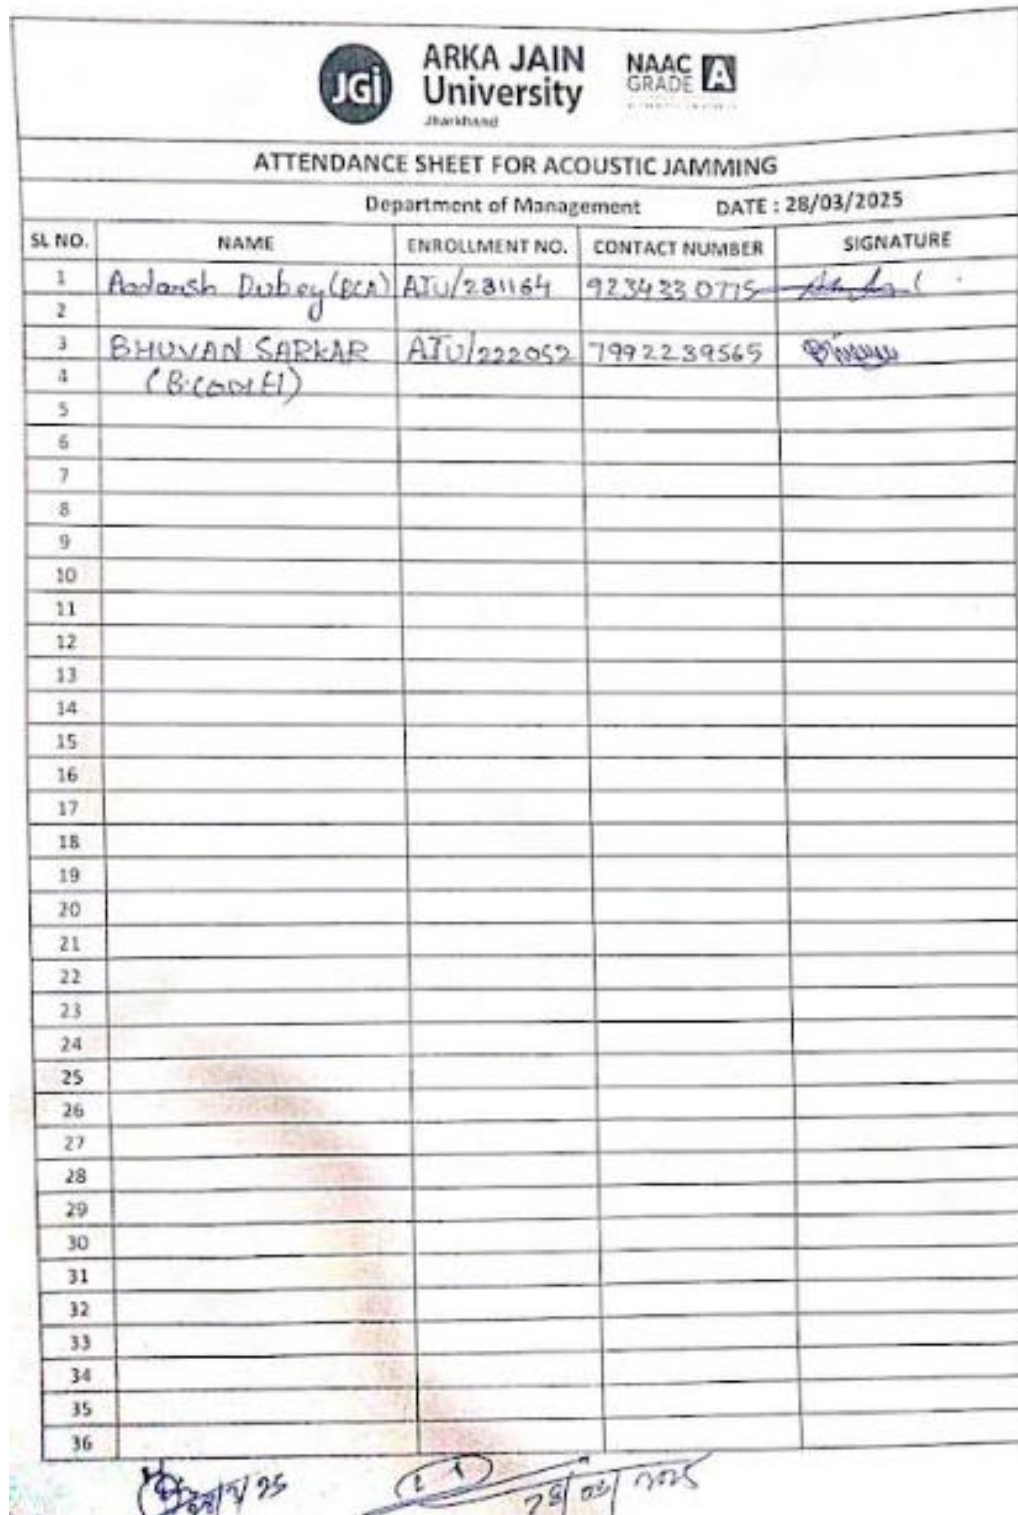 JGi
ARKA JAIN
University
Jharkhand
NAAC
GRADE A
ATTENDANCE SHEET FOR ACOUSTIC JAMMING
Department of Management DATE : 28/03/2025
SL NO. NAME ENROLLMENT NO. CONTACT NUMBER SIGNATURE
1 Aadarsh Dubey (BCA) AJU/231164 9234330775
2
3 BHUVAN SARKAR AJU/222052 7992239565
4
5
6
7
8
9
10
11
12
13
14
15
16
17
18
19
20
21
22
23
24
25
26
27
28
29
30
31
32
33
34
35
36
28/03/2025